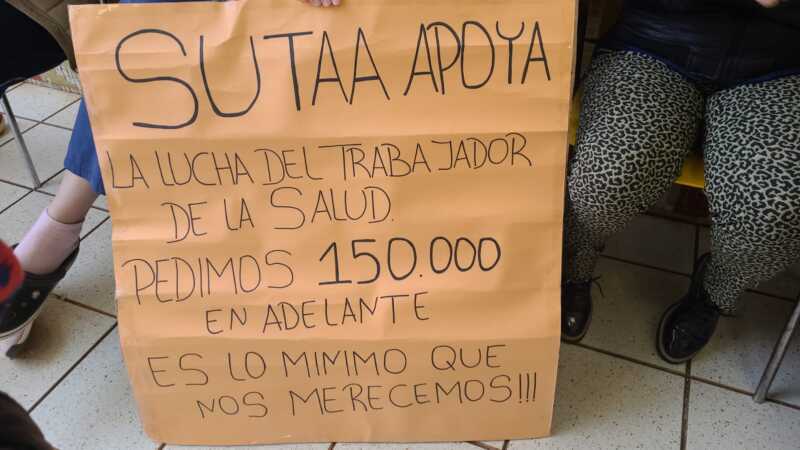 SUTAA APOYA
LA LUCHA DEL TRABAJADOR
DE LA SALUD.
PEDIMOS 150.000
EN ADELANTE
ES LO MINIMO QUE
NOS MERECEMOS!!!